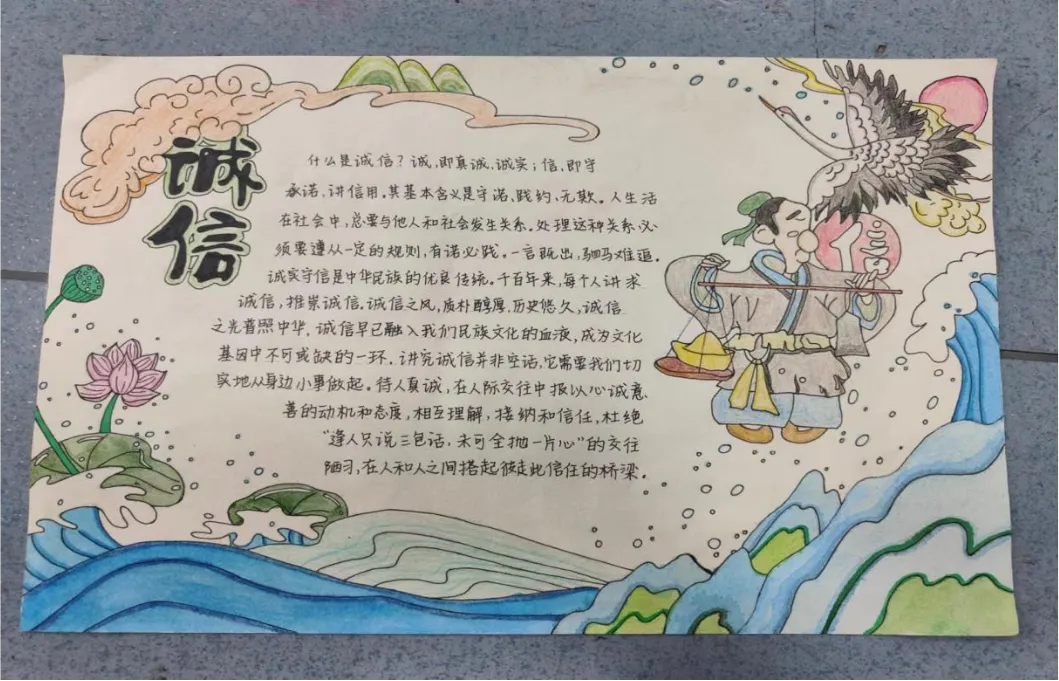 诚
信
什么是诚信？诚，即真诚、诚实；信，即守
承诺、讲信用。其基本含义是守诺、践约、无欺。人生活
在社会中，总要与他人和社会发生关系。处理这种关系必
须要遵从一定的规则，有诺必践。一言既出，驷马难追。
诚实守信是中华民族的优良传统。千百年来，每个人讲求
诚信，推崇诚信。诚信之风，质朴醇厚，历史悠久，诚信
之光普照中华，诚信早已融入我们民族文化的血液，成为文化
基因中不可或缺的一环。讲究诚信并非空话，它需要我们切
实地从身边小事做起。待人真诚，在人际交往中报以心诚意
善的动机和态度，相互理解，接纳和信任，杜绝
“逢人只说三包话，未可全抛一片心”的交往
陋习，在人和人之间搭起彼此信任的桥梁。